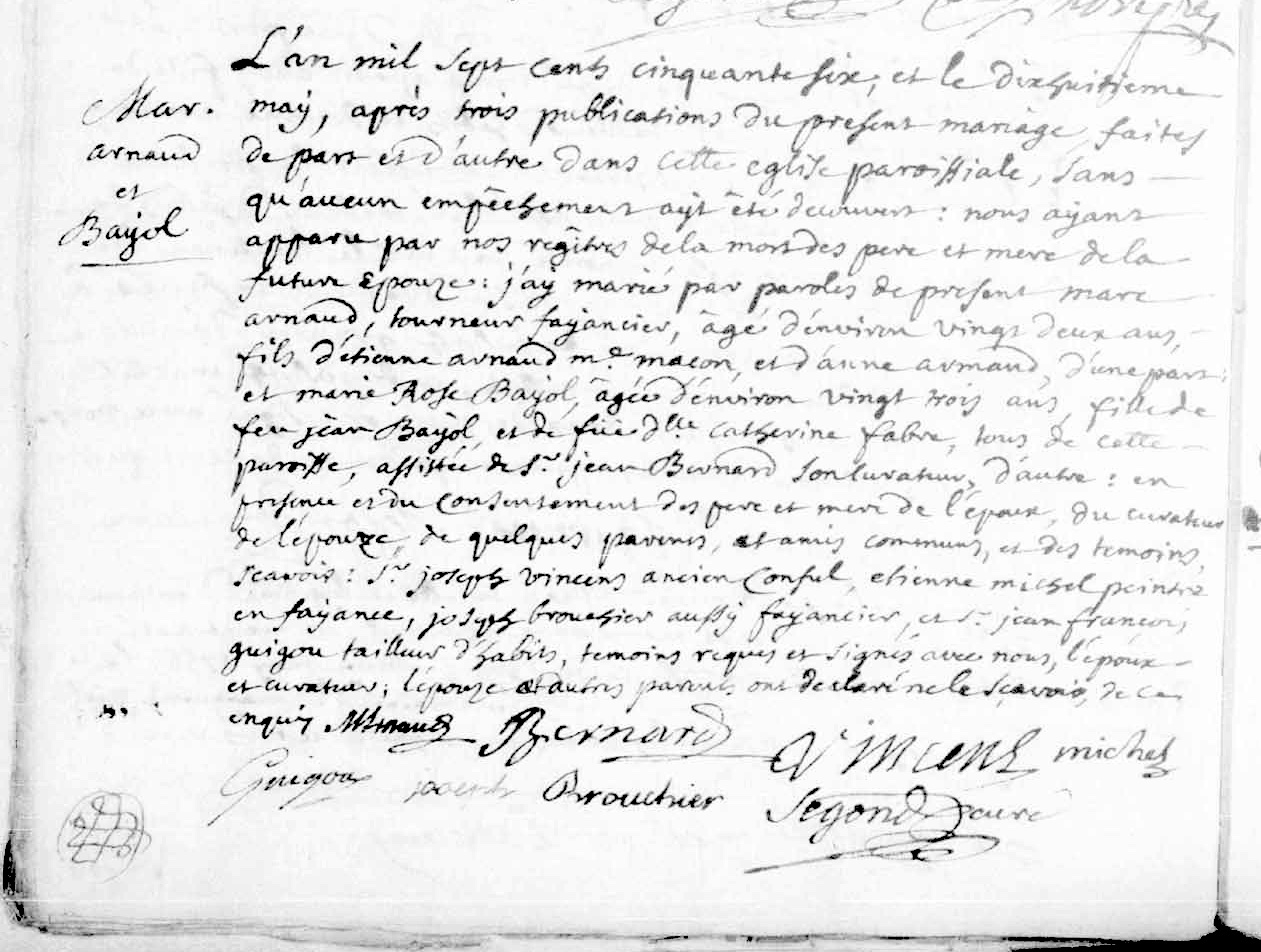 L'an mil sept cents cinquante six, et le dixhuitieme
Mar.
arnaud
et
Bayol
maÿ, après trois publications du present mariage, faites
de part et d'autre dans cette eglise paroissiale, sans
qu'aucun empêchement aÿt été decouvert : nous aÿant
apparu par nos regîtres de la mort des pere et mere de la
future Epouze : j'aÿ marié par paroles de present marc
arnaud, tourneur faÿancier, âgé d'énviron vingt deux ans,
fils d'étienne arnaud me. macon, et d'anne armand, d'une part :
et marie Rose Baÿol, âgée d'énviron vingt trois ans, fille de
feu jean Baÿol, et de füe dlle. catherine fabre, tous de cette
paroisse, assistée de Sr. jean Bernard son curateur, d'autre : en
presence et du consentement des pere et mere de l'époux, du curateur
de l'épouze, de quelques parents, et amis communs, et des temoins,
scavoir : Sr. joseph vincens ancien Consul, etienne michel peintre
en faÿance, joseph brouchier aussÿ faÿancier, et Sr. jean françois
guigou tailleur d'habits, temoins requis et signés avec nous, l'époux
et curateur ; l'epouze et autres parents ont declaré ne le scavoir, de ce
enquis MArnaud Bernard Vincens michel
Guigou joseph Brouchier Segond curé